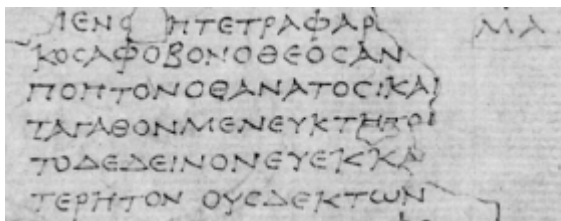 ΙΕΝΟ ΗΤΕΤΡΑΦΑΡ ΜΑ
ΚΟϹΑΦΟΒΟΝΟΘΕΟϹΑΝ
ΠΟΠΤΟΝΟΘΑΝΑΤΟϹ:ΚΑΙ
ΤΑΓΑΘΟΝΜΕΝΕΥΚΤΗΤΟ
ΤΟΔΕΔΕΙΝΟΝΕΥΕΚΚΑ
ΤΕΡΗΤΟΝ ΟΥϹΔΕΚΤΩΝ